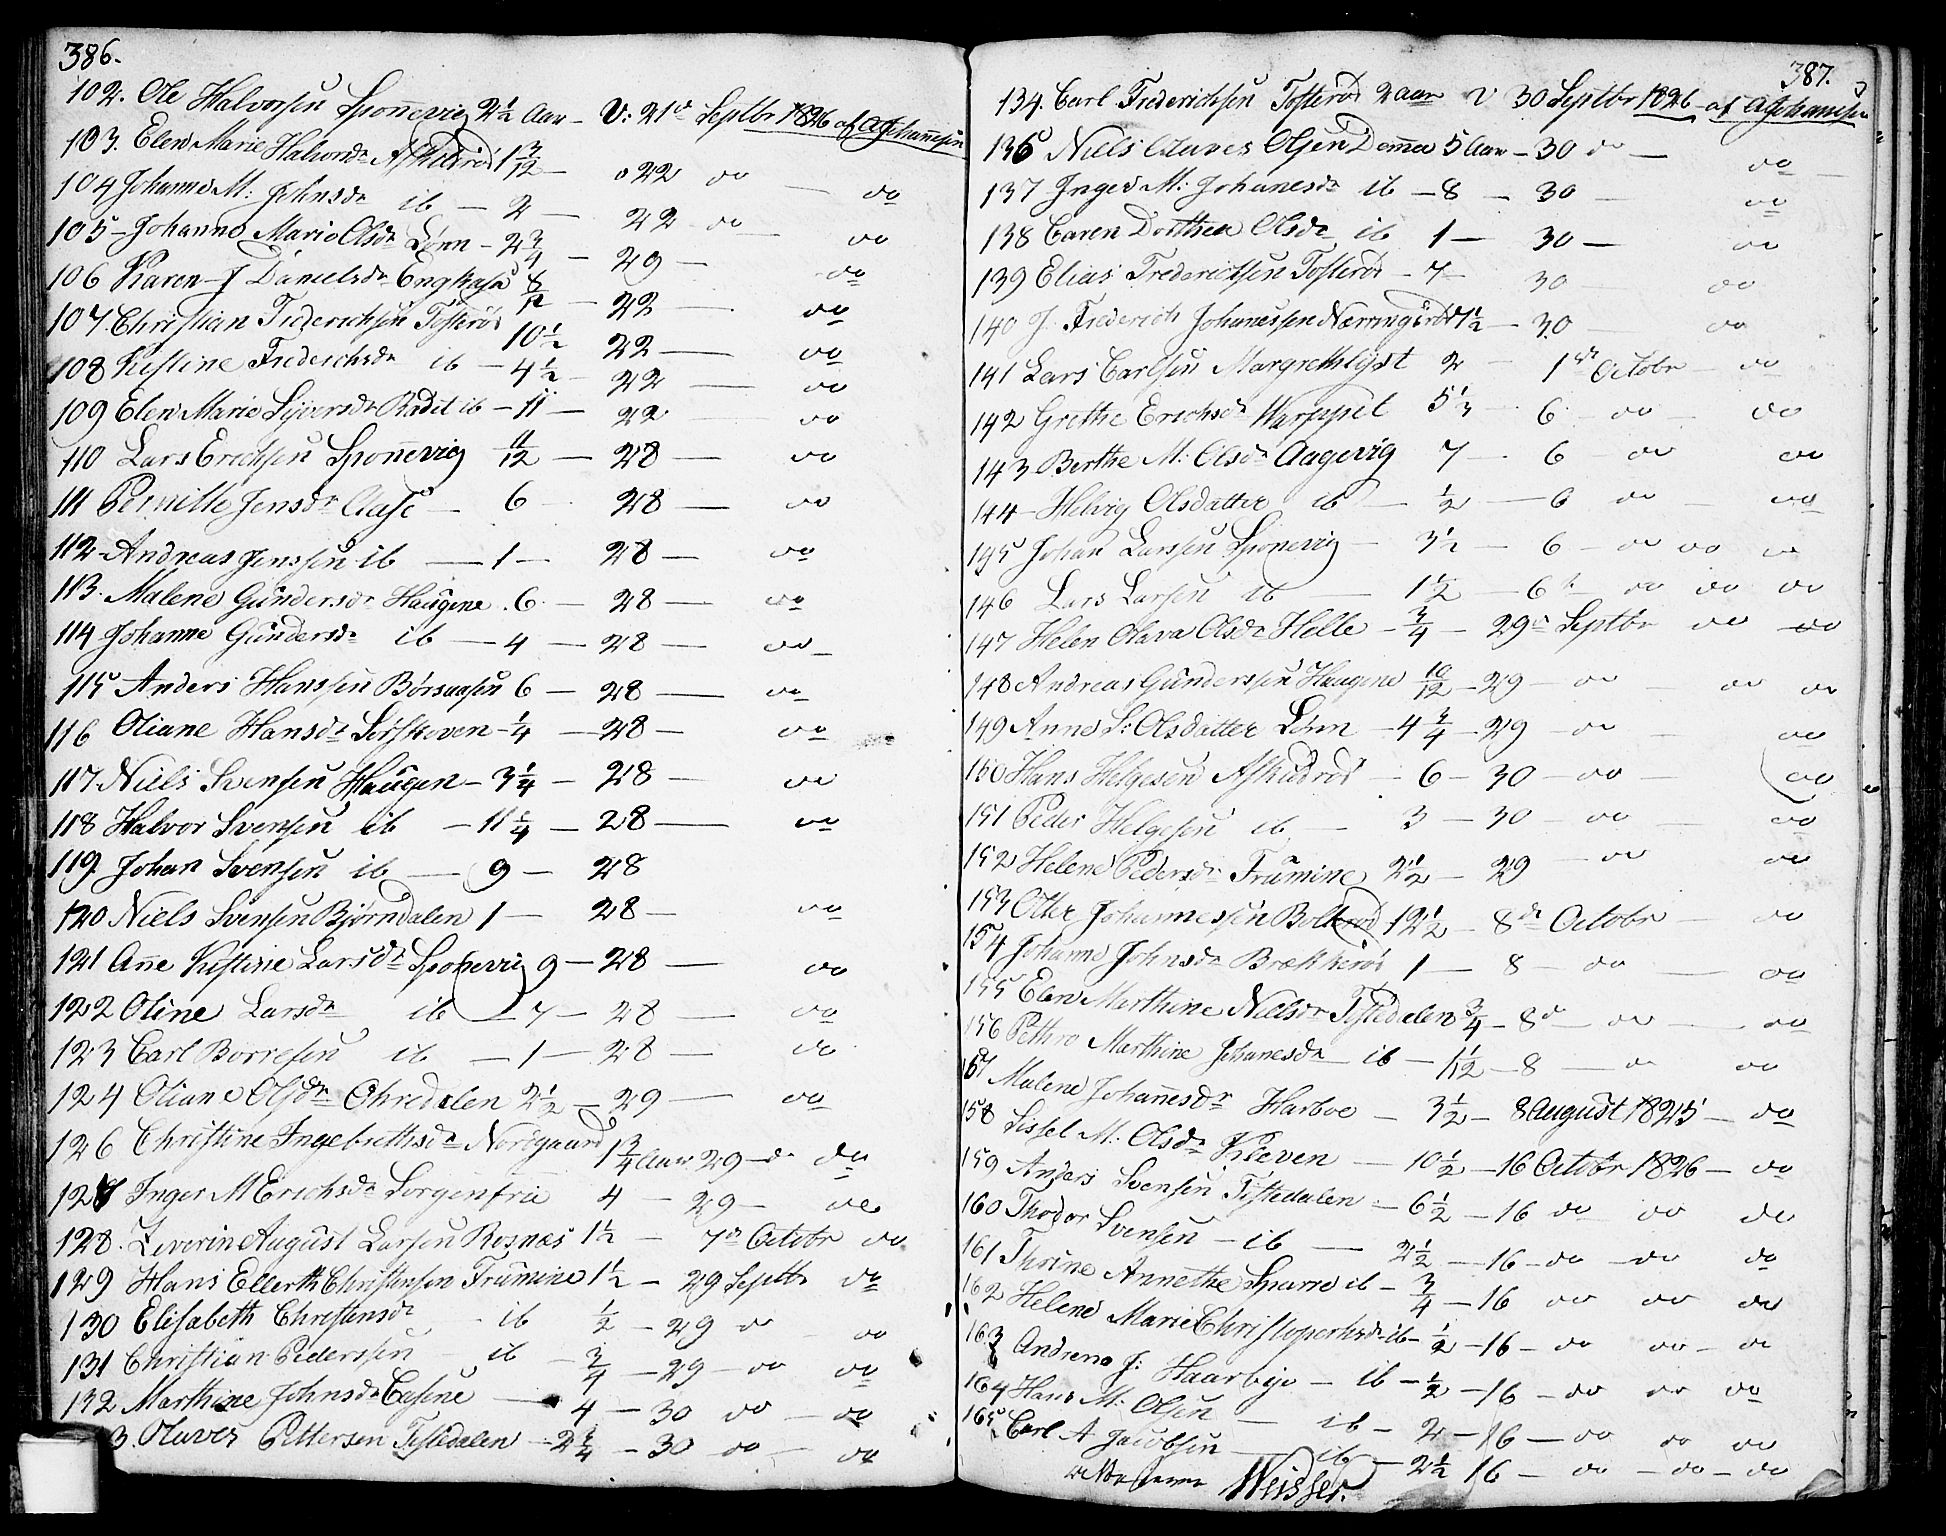 386.
102. Ole Halvorsen Sponnevig 2½ Aar - V: 21de Septbr 1826 af A Johannesen
103. Elen Marie Halvorsdr Askerød 1 3/12 - 22 do — do
104 Johanne M: Johnsdr ib — 2 — 22 do — do
105 - Johanne Marie Olsdr Lønn - 2¾ — 29 — do
106 Karen J Danielsdr 8/12 — 22 — do
107. Christian Friderichsen Tosterød 10½ 22 — do
108 Kistine Frederichsdr ib — 4½ - 22 — do
109 Elen Marie Syversdr ib - 11 — 22 do
110 Lars Erichsen Sponnevig 11/12 — 28 — do
111 Pernille Jensdr Aase — 6 — 28 — do
112 - Andreas Jenssen ib — 1 — 28 — do
113. Malene Gundersdr Haugene . 6 — 28 — do
114 Johanne Gundersdr ib — 4 — 28 — do
115 Anders Hanssen Børsaasen 6 — 28 — do
116 Oliane Hansdr Sørskoven - ¼ — 28 — do
117 - Niels Svensen Haugen - 3¼ — 28 — do
118 Halvor Svensen ib — 11¼ — 28 — do
119. Johan Svensen ib — 9 — 28
120 Niels Svensen Bjørndalen 1 — 28 — do
121 Ane Kistine Larsdr Sponevig 9 — 28 — do
122 Oline Larsdr ib — 7 — 28 — do
123 Carl Borresen ib — 1 — 28 — do
124 Oliane Olsdr Ohredalen 2½ — 29 — do
126 Christine Ingebrethsdr Norsgaard 1¾ Aar 29 — do do
127 Inger M Erichsdr Sorgenfrie 4 — 29 — do
128. Severin August Larsen Rosnæs 1½ — 7de Octobr do
129 Hans Ellerth Christensen Trumine 1½ — 29 Septbr do
130 Elisabeth Christensdr - ib ½ — 29 do — do
131 Christian Pederssen — ib — ¾ — 29 — do do
132 Marthine Johnsdr — 4 — 30 do — do
3. Olaves Pettersen Tistedalen — 2¾ — 30 do — do
387.
134. Carl Frederichsen Tosterød 2 aar V 30 Septbr 1826 af A Johannesen
136 Niels Olaves Olsen Damma 5 Aar — 30 do — do
137 Inger M: Johanesdr ib — 8 — 30 — do
138 Caren Dorthea Olsdr ib 1 — 30 — do
139 Elias Frederichsen Tosterød — 7 — 30 — do
140 J. Frederich Johanessen 1½ — 30 — do
141 Lars Carlsen Margrethlyst 2 — 1ste Octobr — do
142 Grethe Erichsdr Warppet 5½ — 6 — do — do
143 Berthe M: Olsdr Aagevig 7 — 6 do do
144 - Helvig Olsdatter ib — ½ — 6 do — do
145 Johan Larssen Sponevig — 3½ — 6 — do do do
146 Lars Larsen ib — 1½ — 6te do do do
147 Helen Olava Olsdr Helle — ¾ — 29de Septbr do do
148 Andreas Gunderssen Haugene 10/12 — 29 — do — do do
149 Anne S: Olsdatter Lønn — 4¾ — 29 — do — do
150 Hans Helgesen Askerød — 6 — 30 — do — do
151 Peder Helgesen ib — 3 — 30 — do — do
152 Helene Pedersdr Trumine 2½ — 29 — do do
153 Otter Johannessen Bolterød 12½ — 8de Octobr — do
154 Johanne Johnsdr Brækkerød 1 — 8 — do — do
155 Elen Marthine Nielsdr Tistedalen ¾ — 8de — do — do
156 Pethro Marthine Johanesdr — ib — 1 1/12 — 8 — do do
157 Malene Johanesdr Harboe — 3½ — 8 August 1825 — do
158 Sissel M. Olsdr Kleven — 10½ — 16 Octobr 1826 — do
159 Anders Svensen Tistedalen — 6½ — 16 do do do
160 Thodor Svensen — ib — 2½ — 16 — do — do do
161 Thrine Annethe Sparre ib — ¾ — 16 do do do
162 Helene Marie Christopershdr ib — ½ — 16 — do do — do
163 Andrena J: Haarbye — ib — ½ — 16 — do do do
164 Hans M: Olsen — ib — 2 — 16 — do do do
165 Carl A Jacobsen — ib — 2½ 16 — do — do — do
Weisser.